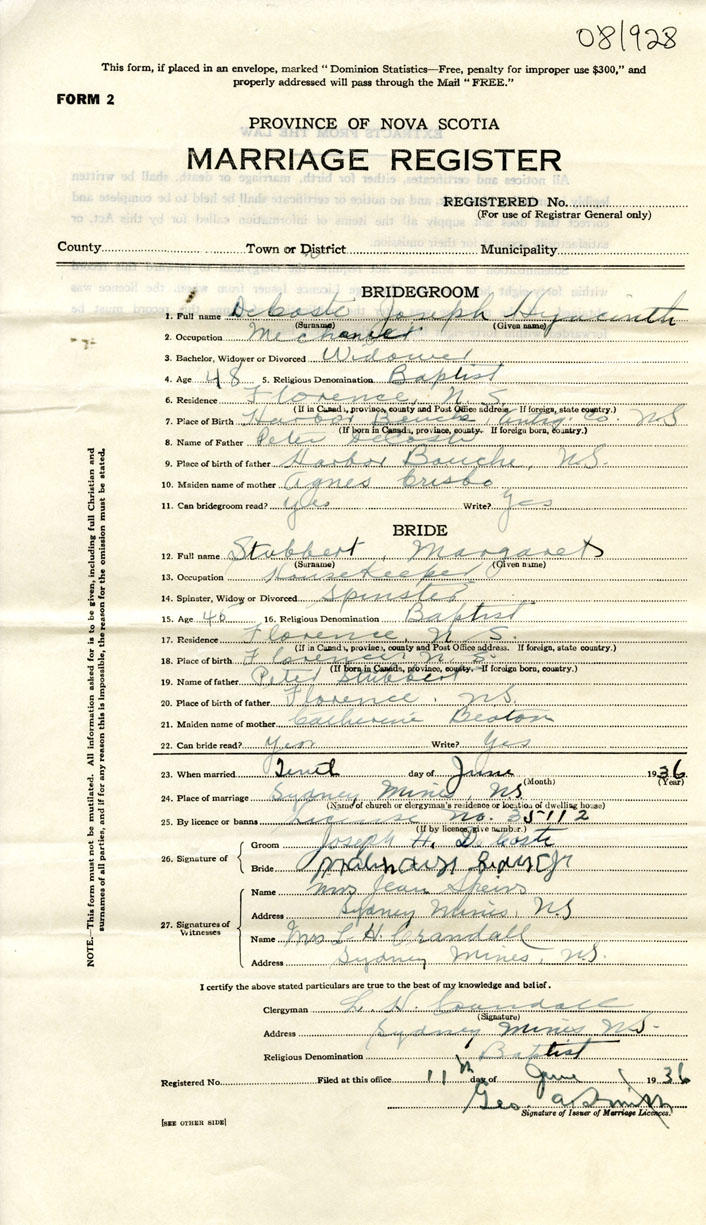 08/928
This form, if placed in an envelope, marked "Dominion Statistics—Free, penalty for improper use $300," and
properly addressed will pass through the Mail "FREE."
FORM 2
PROVINCE OF NOVA SCOTIA
MARRIAGE REGISTER
REGISTERED No.
(For use of Registrar General only)
County Town or District Municipality
BRIDEGROOM
1. Full name DeCoste Joseph Hyacinth
(Surname) (Given name)
2. Occupation Mechanic
3. Bachelor, Widower or Divorced Widower
4. Age 48 5. Religious Denomination Baptist
6. Residence Florence, N.S.
(If in Canada, province, county and Post Office address. If foreign, state country.)
7. Place of Birth Harbor Bouche Antig Co. N S
(If born in Canada, province, county. If foreign born, country.)
8. Name of Father Peter DeCoste
9. Place of birth of father Harbor Bouche, N.S.
10. Maiden name of mother Agnes Crisbo
11. Can bridegroom read? yes Write? yes
BRIDE
12. Full name Stubbert, Margaret
(Surname) (Given name)
13. Occupation Housekeeper
14. Spinster, Widow or Divorced Spinster
15. Age 46 16. Religious Denomination Baptist
17. Residence Florence, N.S.
(If in Canada, province, county and Post Office address. If foreign, state country.)
18. Place of birth Florence, N.S.
(If born in Canada, province, county. If foreign born, country.)
19. Name of father Peter Stubbert
20. Place of birth of father Florence, N.S.
21. Maiden name of mother Catherine Beaton
22. Can bride read? Yes Write? Yes
23. When married Tenth day of June 1936
(Month) (Year)
24. Place of marriage Sydney Mines, N.S
(Name of church or clergyman's residence or location of dwelling house)
25. By licence or banns License No. 35112
(If by licence, give number.)
26. Signature of Groom Joseph H. DeCoste
Bride
27. Signatures of Witnesses
Name Mrs Jean Speirs
Address Sydney Mines, N.S
Name Mrs L H. Crandall
Address Sydney Mines, N.S.
I certify the above stated particulars are true to the best of my knowledge and belief.
Clergyman L. H. Crandall
(Signature)
Address Sydney Mines N.S.
Religious Denomination Baptist
Registered No. Filed at this office 11th day of June 1936
Geo. A Smith
Signature of Issuer of Marriage Licences.
[SEE OTHER SIDE]
NOTE.—This form must not be mutilated. All information asked for is to be given, including full Christian and
surnames of all parties, and if for any reason this is impossible, the reason for the omission must be stated.